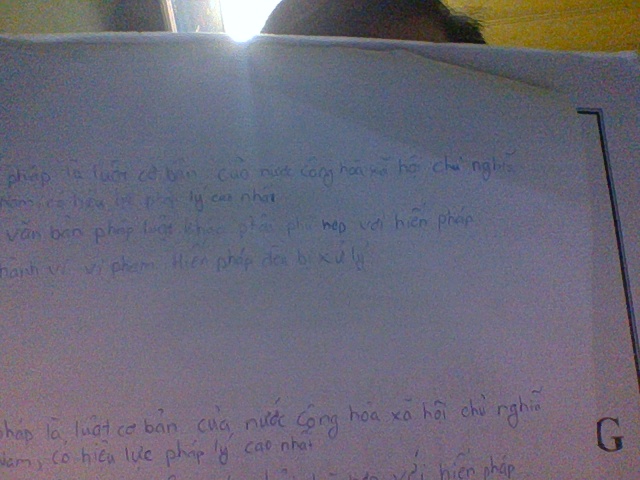 pháp là luật cơ bản của nước cộng hòa xã hội chủ nghĩa
nam, có hiệu lực pháp lý cao nhất
văn bản pháp luật khác phải phù hợp với hiến pháp
hành vi vi phạm Hiến pháp đều bị xử lý
pháp là luật cơ bản của nước cộng hòa xã hội chủ nghĩa
Nam, có hiệu lực pháp lý cao nhất
với hiến pháp
G